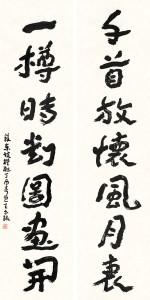 千首放懷風月裏
一樽時對圖畫開